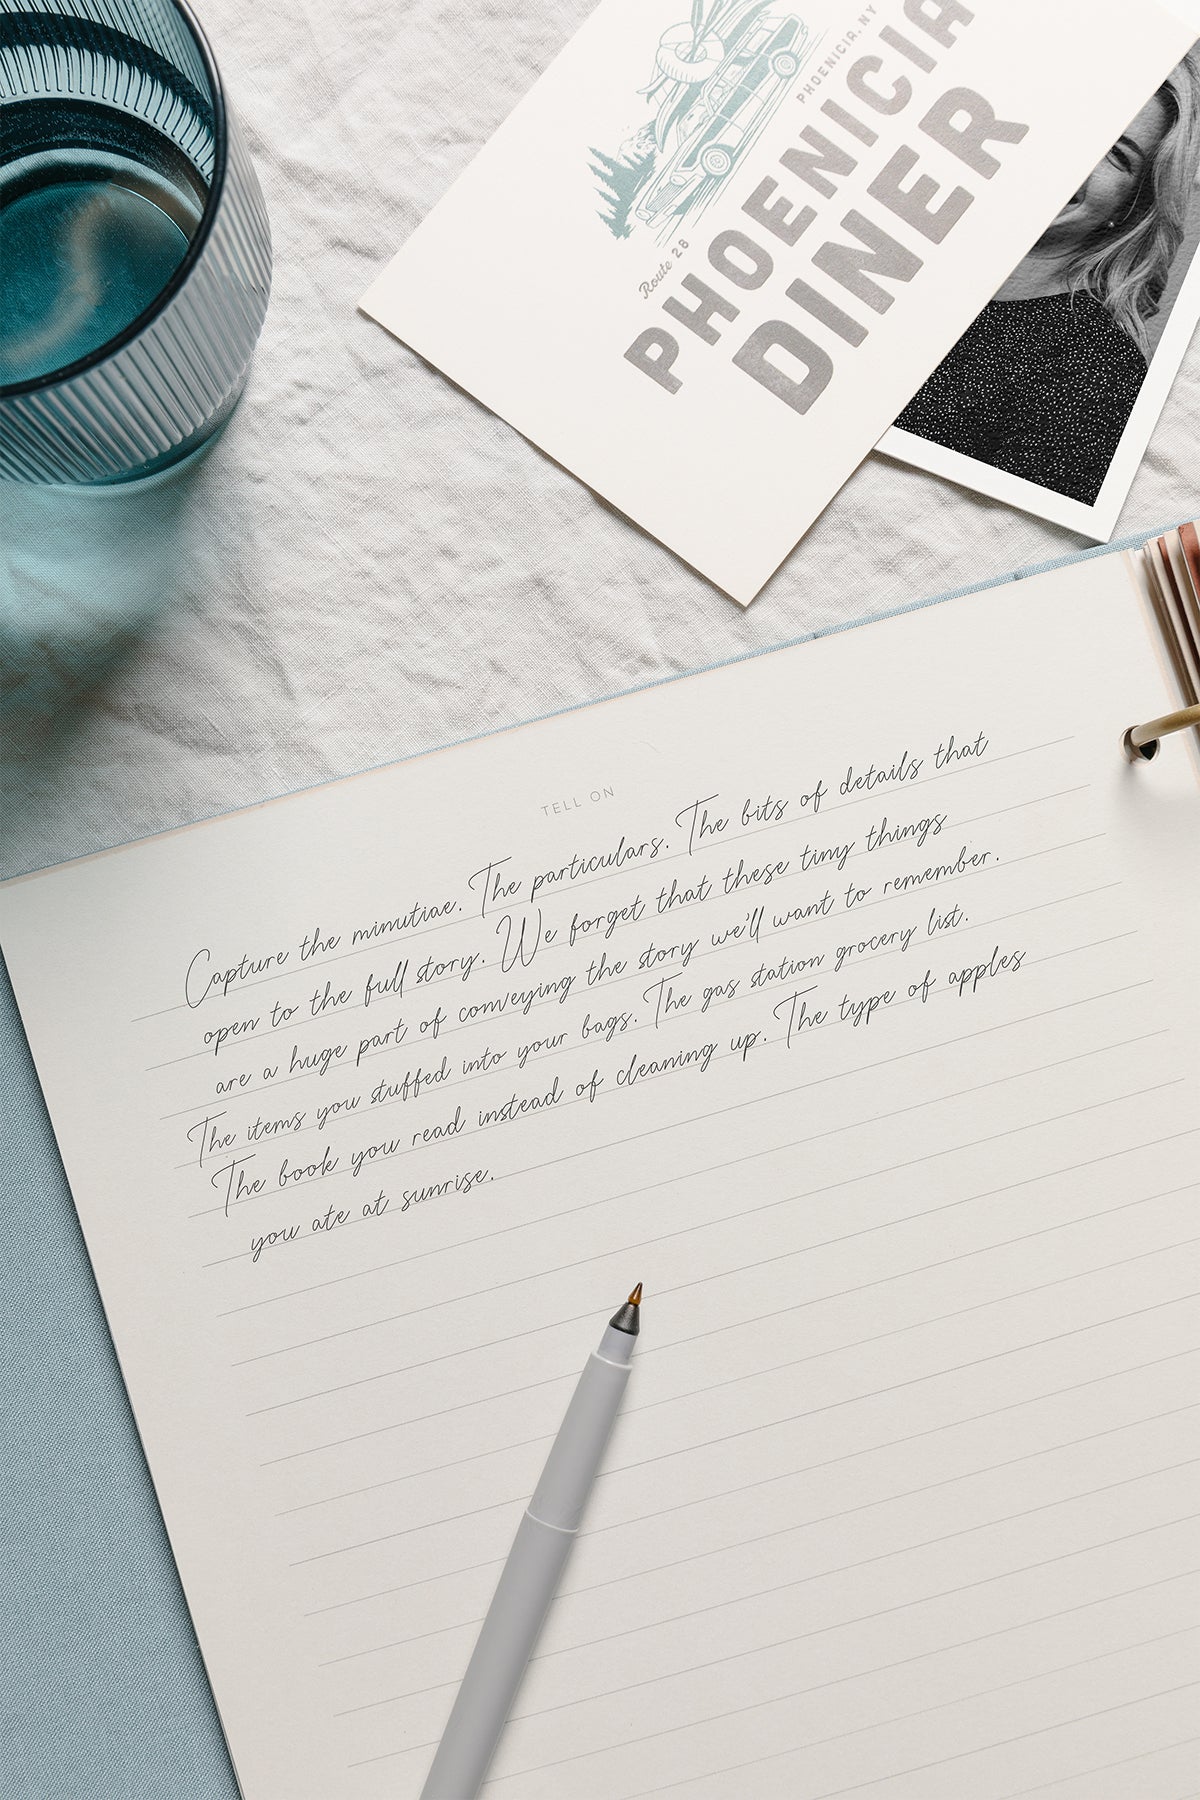 PHOENICIA, NY
Route 28
PHOENICIA
DINER
TELL ON
Capture the minutiae. The particulars. The bits of details that
open to the full story. We forget that these tiny things
are a huge part of conveying the story we'll want to remember.
The items you stuffed into your bags. The gas station grocery list.
The book you read instead of cleaning up. The type of apples
you ate at sunrise.